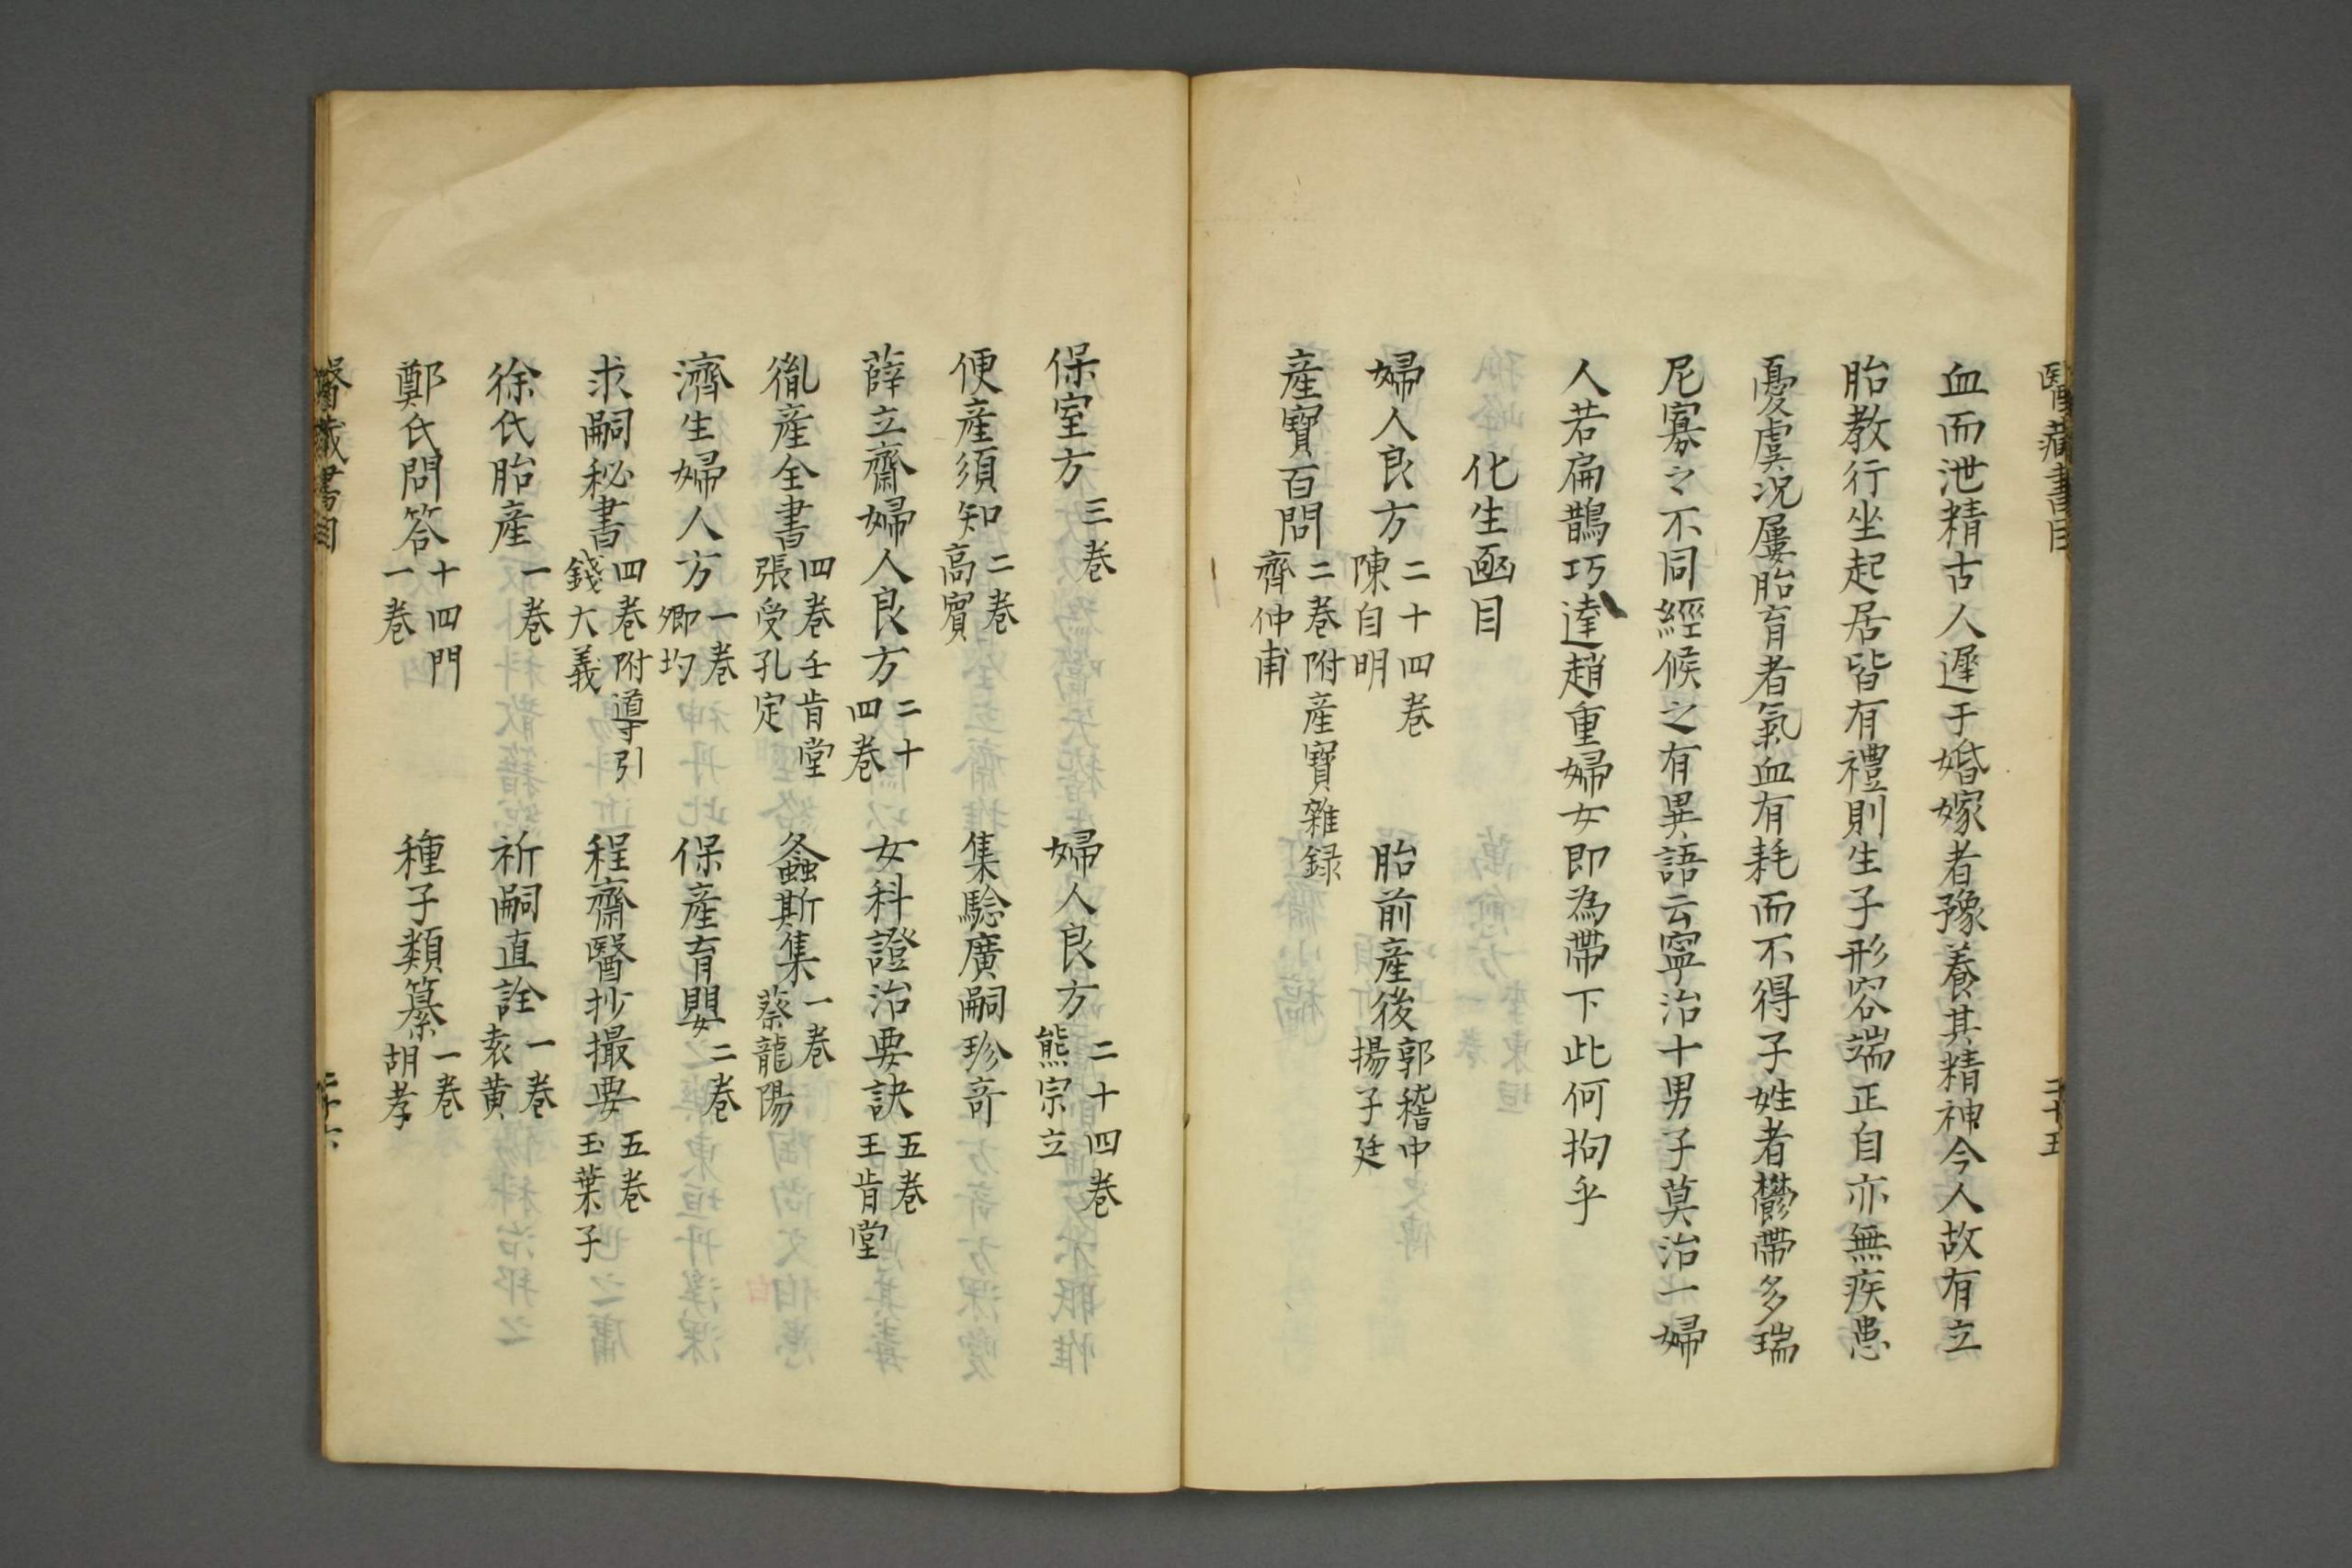 醫藏書目
二十五
血而泄精古人遲于婚嫁者豫養其精神今人故有立
胎教行坐起居皆有禮則生子形容端正自亦無疾患
憂虞况屢胎育者氣血有耗而不得子姓者鬱帶多瑞
尼寡之不同經候之有異語云寧治十男子莫治一婦
人若扁鵲巧達趙重婦女即為帶下此何拘乎
化生函目
婦人良方 二十四卷 陳自明
胎前產後 郭稽中 揚子廷
產寶百問 二卷附產寶雜録 齊仲甫
保室方 三卷
婦人良方 二十四卷 熊宗立
便產須知 二卷 高賓
集驗廣嗣珍奇
薛立齋婦人良方 二十四卷
女科證治要訣 五卷 王肯堂
胤產全書 四卷 王肯堂 張受孔定
螽斯集 一卷 蔡龍陽
濟生婦人方 一卷 卿圴
保產育嬰 二卷
求嗣秘書 四卷附導引 錢大義
程齋醫抄撮要 五卷 玉葉子
徐氏胎產 一卷
祈嗣直詮 一卷 袁黄
鄭氏問答 十四門 一卷
種子類纂 一卷 胡孝
醫藏書目
二十六